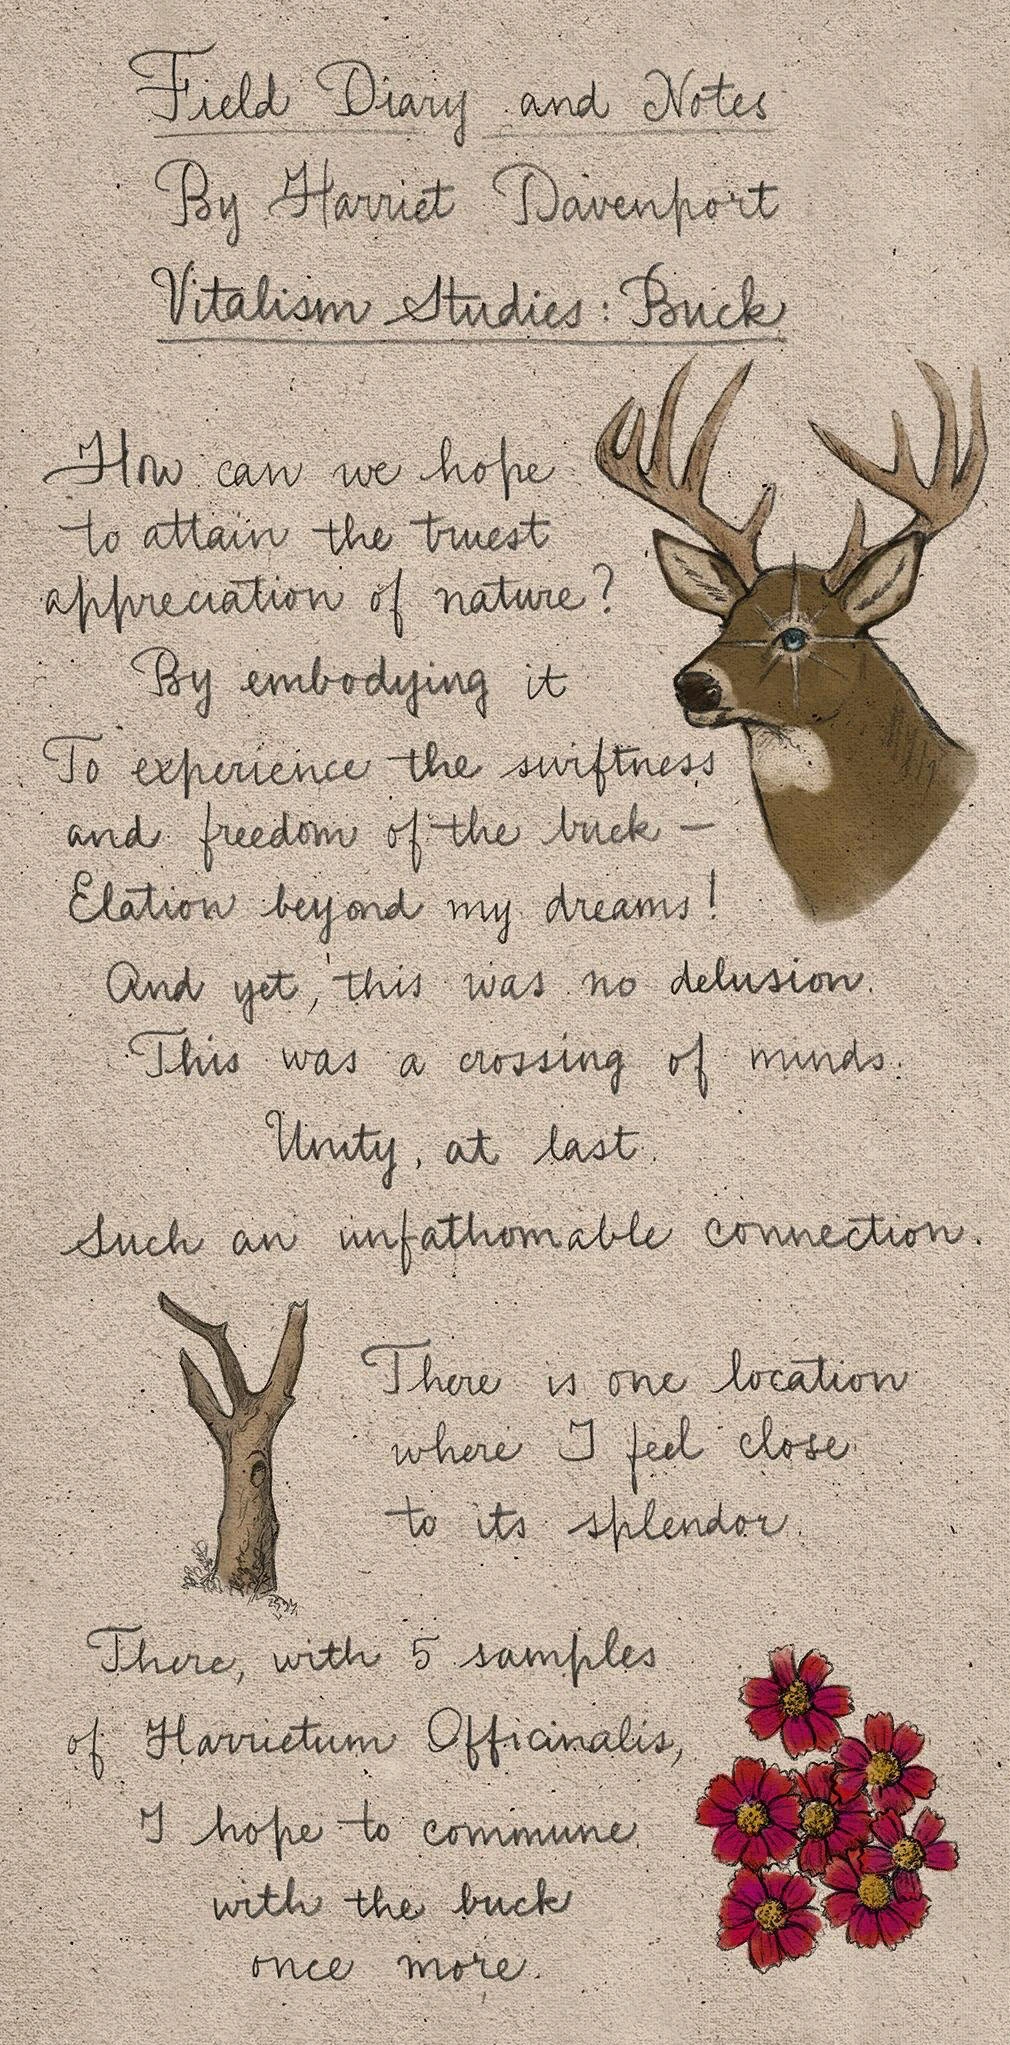 Field Diary and Notes
By Harriet Davenport
Vitalism Studies: Buck
How can we hope
to attain the truest
appreciation of nature?
By embodying it
To experience the swiftness
and freedom of the buck –
Elation beyond my dreams!
And yet, this was no delusion.
This was a crossing of minds.
Unity, at last.
Such an unfathomable connection.
There is one location
where I feel close
to its splendor.
There, with 5 samples
of Harrietum Officinalis,
I hope to commune
with the buck
once more.